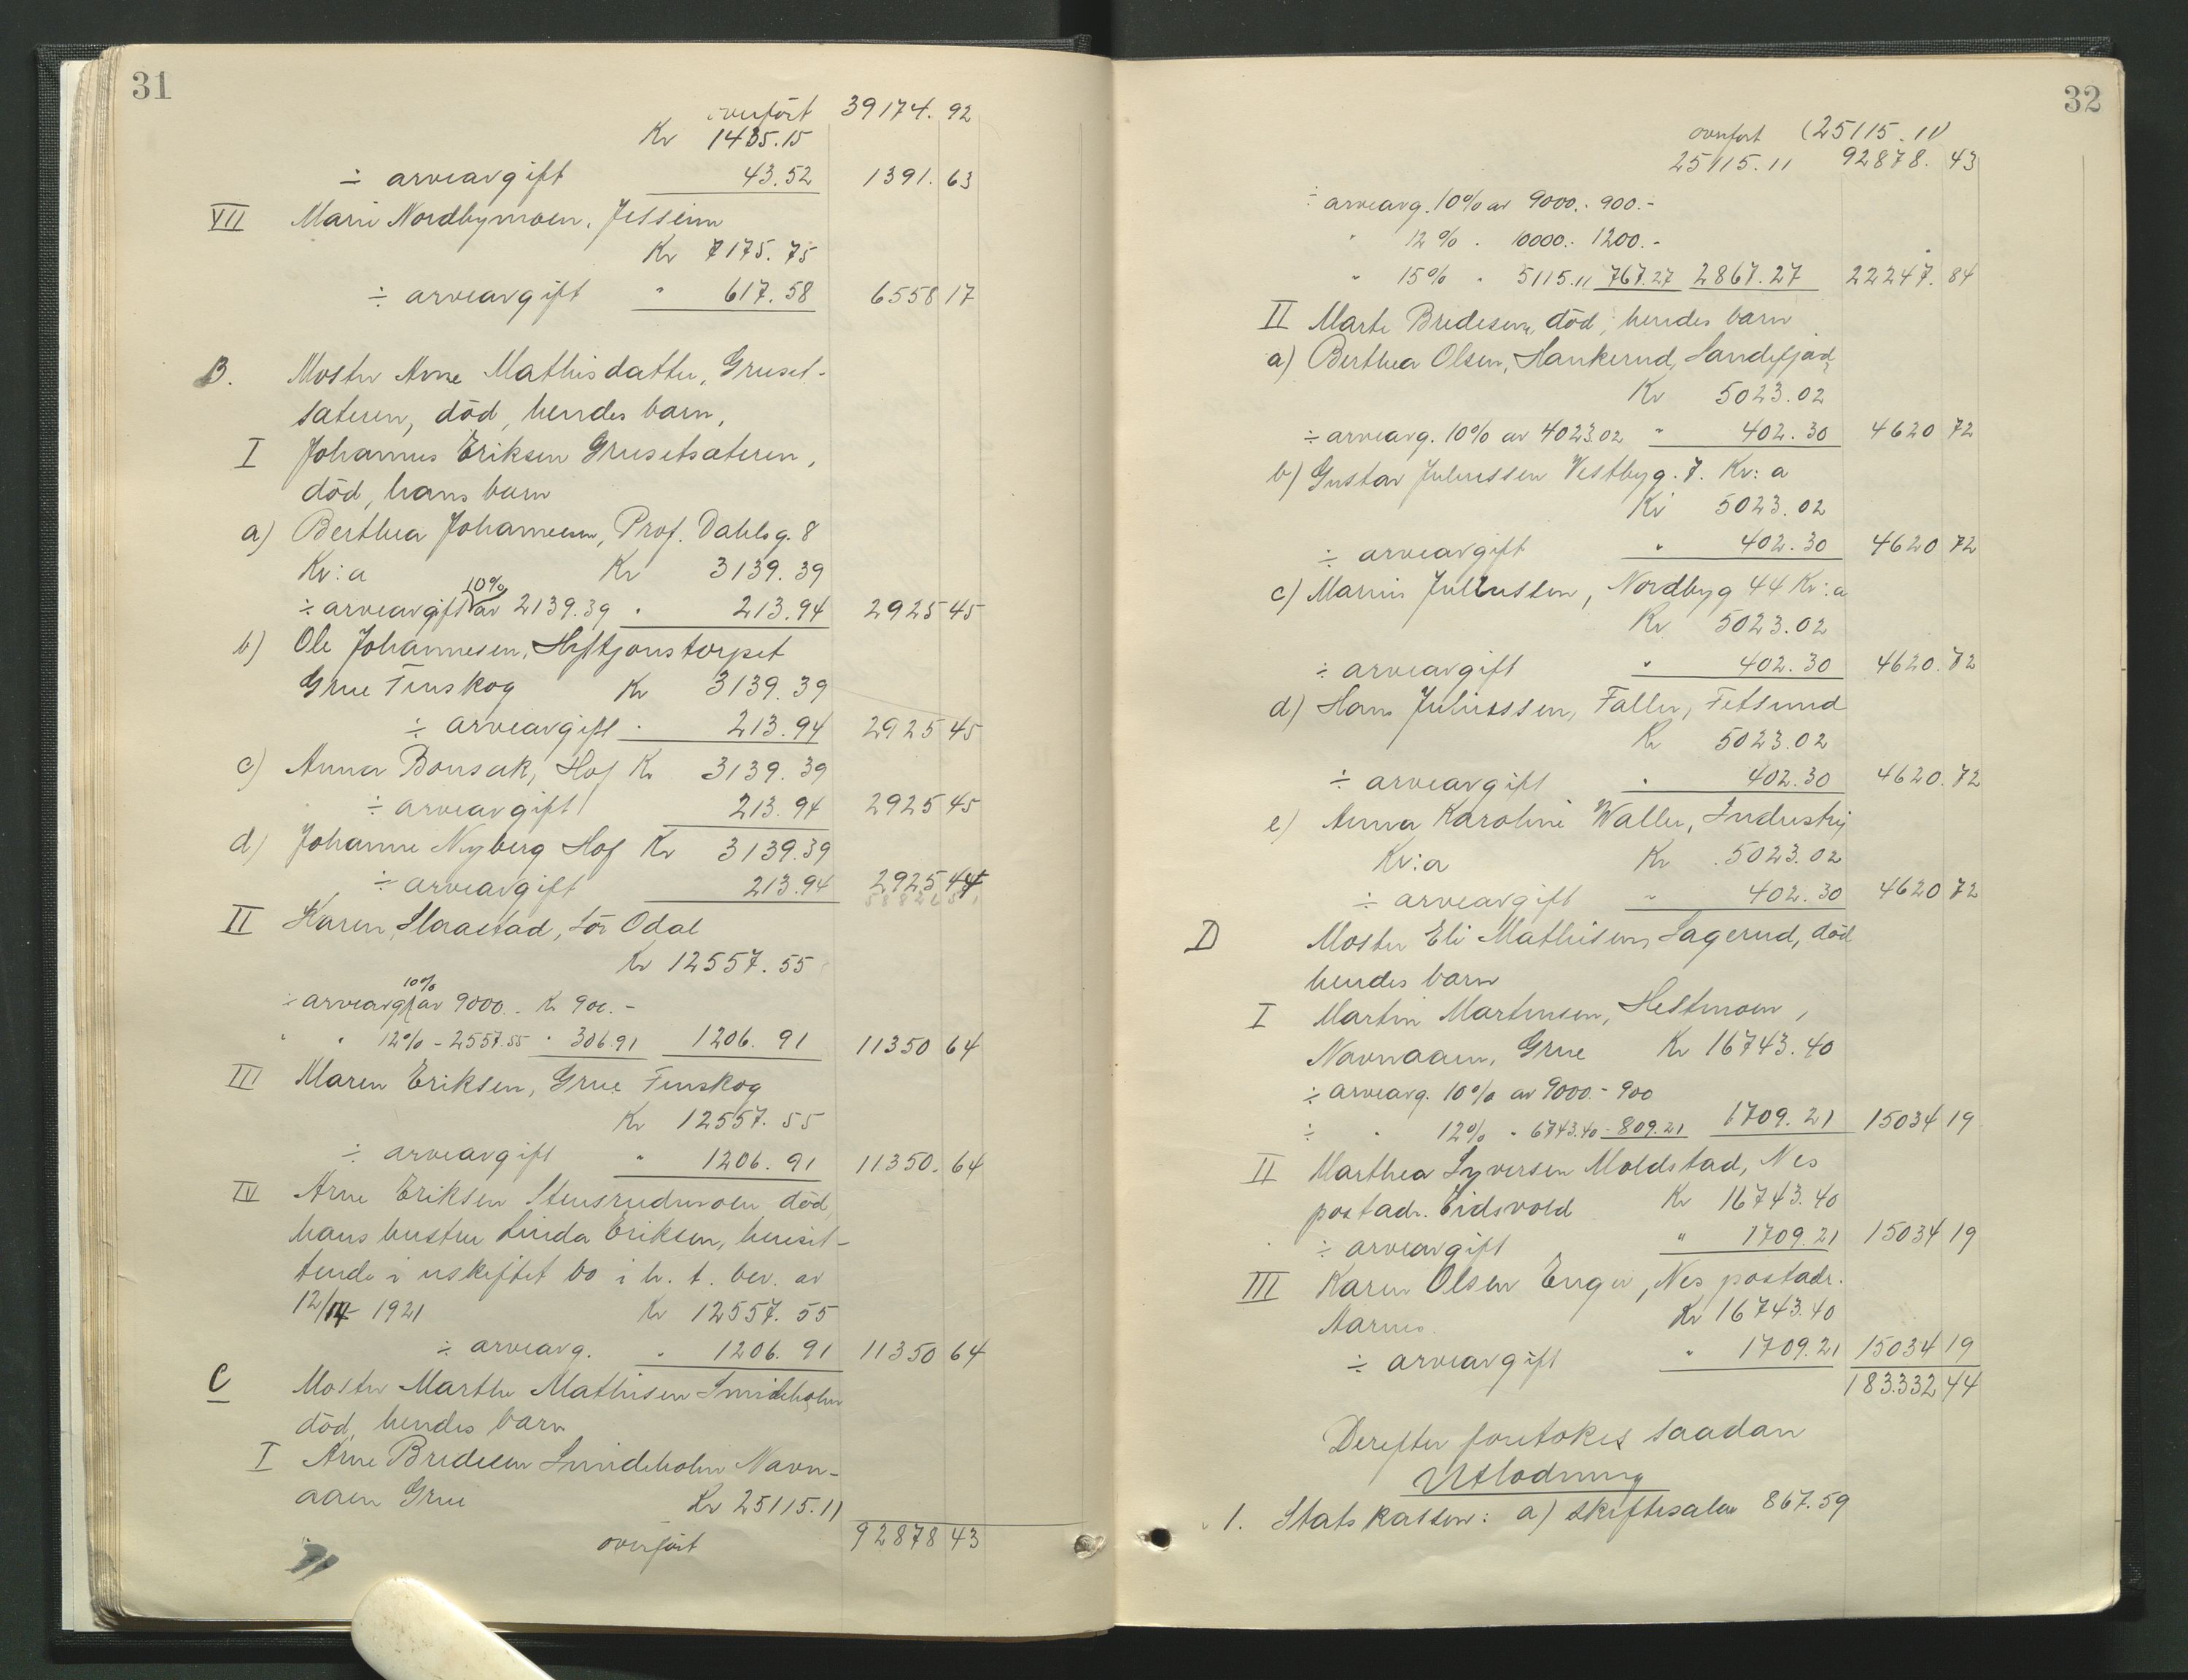 31
overfört 39174.92
Kr 1435.15
÷ arveavgift 43.52 1391.63
VII Marie Nordbymoen, Jesseim
Kr 7175.75
÷ arveavgift " 617.58 6558 17
B. Moster Arne Mathisdatter, Gruset-
sæteren, död, hendes barn,
I Johannes Eriksen Grusetsæteren,
död, hans barn
a) Berthea Johannesen, Prof. Dahls g. 8
Kr:a Kr 3139.39
10%
÷ arveavgift av 2139.39 " 213.94 2925 45
b) Ole Johannesen, Heftjonstorpet
Grue Finskog Kr 3139.39
÷ arveavgift " 213.94 2925 45
c) Anna Bonsak, Hof Kr 3139.39
÷ arveavgift 213.94 2925 45
d) Johanne Nyberg Hof Kr 3139.39
÷ arveavgift 213.94 2925 44
II Karen Slaastad, Sör Odal
Kr 12557.55
10%
÷ arveavg. av 9000.- Kr 900.-
" " 12% - 2557.55 " 306.91 1206.91 11350 64
III Maren Eriksen, Grue Finskog
Kr 12557.55
÷ arveavgift " 1206.91 11350.64
IV Arne Eriksen Stensrudmoen död,
hans hustru Linda Eriksen, hensit-
tende i uskiftet bo i h. t. bev. av
12/4 1921 Kr 12557.55
÷ arveavg. " 1206.91 11350 64
C Moster Marthe Mathisen Smideholm
död, hendes barn
I Arne Bredesen Smideholm Navn-
aaen Grue Kr 25115.11
overfört 92878 43
32
overfört (25115.11)
25115.11 92878.43
÷ arveavg. 10% av 9000.- 900.-
" 12% " 10000.- 1200.-
" 15% " 5115.11 767.27 2867.27 22247.84
II Marte Bredesen, död, hendes barn
a) Berthea Olsen, Haukerud, Sandefjord,
Kr 5023.02
÷ arveavg. 10% av 4023.02 " 402.30 4620 72
b) Gustav Juliussen Vestbyg. 7. Kr:a
Kr 5023.02
÷ arveavgift " 402.30 4620 72
c) Marius Juliussen, Nordbyg 44 Kr:a
Kr 5023.02
÷ arveavgift " 402.30 4620.72
d) Hans Juliussen, Faller, Fetsund
Kr 5023.02
÷ arveavgift " 402.30 4620.72
e) Anna Karoline Waller, Industrig
Kr:a Kr 5023.02
÷ arveavgift " 402.30 4620 72
D Moster Eli Mathisen, Lagerud, död
hendes barn
I Martin Martinsen, Hestmoen,
Navnaaen, Grue Kr 16743.40
÷ arveavg. 10% av 9000.- 900
÷ " 12% " 6743.40 - 809.21 1709.21 15034 19
II Marthea Syversen Moldstad, Nes
postadr. Eidsvold Kr 16743.40
÷ arveavgift " 1709.21 15034 19
III Karen Olsen Enger, Nes postadr.
Aarnes. Kr 16743.40
÷ arveavgift " 1709.21 15034 19
183.332 44
Derefter foretokes saadan
Utlodning
1. Statskassen: a) skiftesalær 867.59